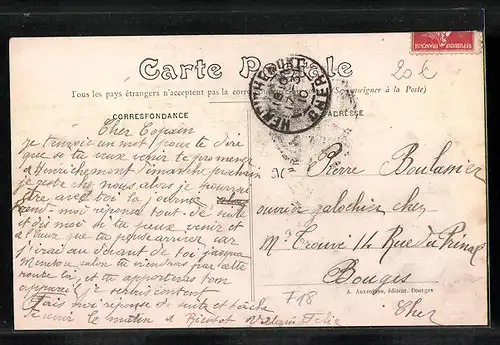 Carte Postale
Tous les pays étrangers n'acceptent pas la correspondance (Se renseigner à la Poste)
CORRESPONDANCE
ADRESSE
HENRICHEMONT
CHER
REPUBLIQUE FRANÇAISE
20 €
Cher Copain
je t'envoie un mot pour te dire
que se tu veux venir te promener
a Henrichemont dimanche prochain
je reste chez nous alors je pourrai
être avec toi la journée
moi réponse tout de suite
et dis moi si tu peux venir et
a l'heure que tu pense arriver car
j'irai au devant de toi jusqua
Menetou salon tu viendras par cette
route là, et tu apporteras ton
appareil je serais content
Fais moi réponse de suite et tâche
de venir le matin a Bientot
M. Pierre Boulassier
ouvrier galochier chez
Mr Trouvé 14 Rue du Prinal
Bouges
Cher
A. Auxenfans, éditeur, Bourges
F18